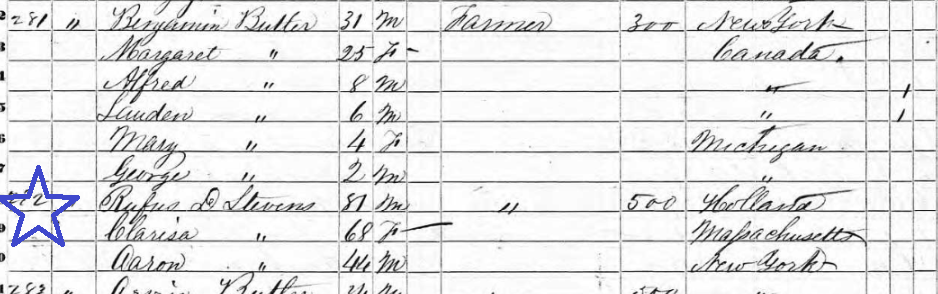 281 " Benjamin Butler 31 M Farmer 300 New York
Margaret " 25 F Canada.
Alfred " 8 M " 1
Linden " 6 M " 1
Mary " 4 F Michigan
George " 2 M "
Rufus D Stevens 81 M " 500 Holland
Clarisa " 68 F Massachusetts
Aaron " 44 M New York
283 " Butler